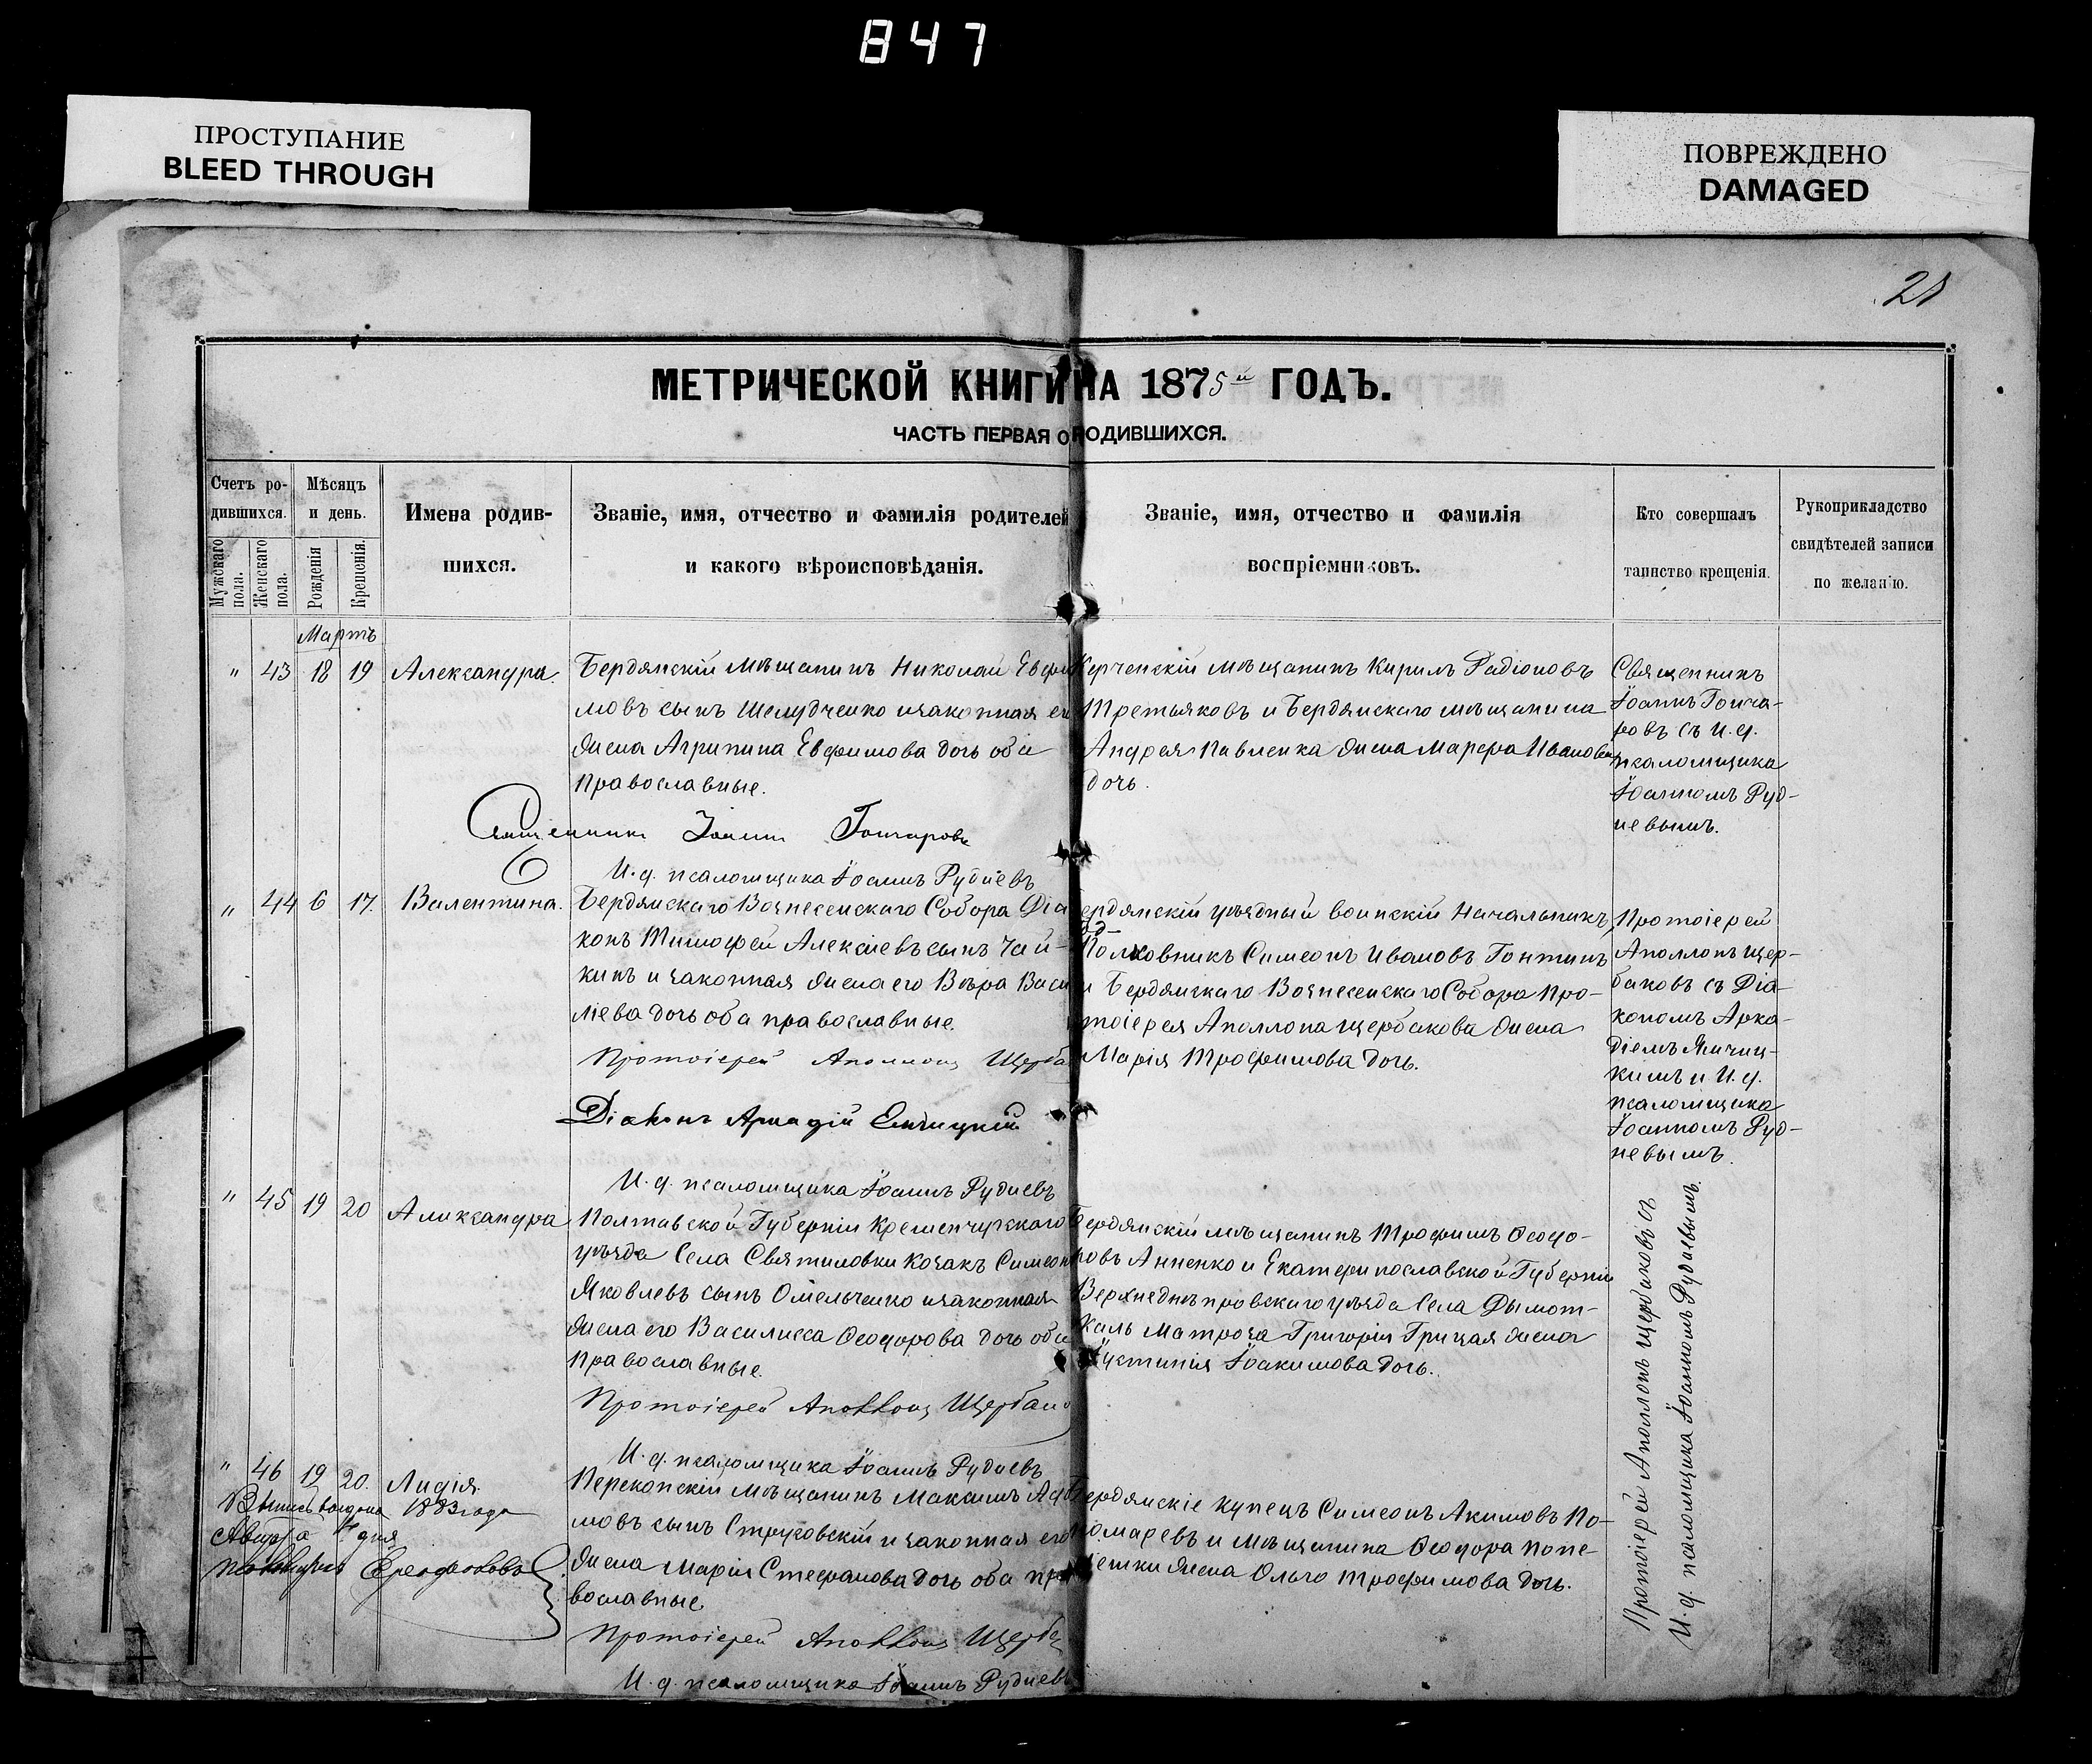 847
ПРОСТУПАНИЕ
BLEED THROUGH
ПОВРЕЖДЕНО
DAMAGED
21
МЕТРИЧЕСКОЙ КНИГИ НА 1875й ГОДЪ.
ЧАСТЬ ПЕРВАЯ О РОДИВШИХСЯ.
Счетъ ро-
дившихся.
Мужскаго
пола.
Женскаго
пола.
Мѣсяцъ
и день.
Рожденія
Крещенія.
Имена родив-
шихся.
Званіе, имя, отчество и фамилія родителей
и какого вѣроисповѣданія.
Званіе, имя, отчество и фамилія
воспріемниковъ.
Кто совершалъ
таинство крещенія.
Рукоприкладство
свидѣтелей записи
по желанію.
Мартъ
" 43 18 19 Александра.
Бердянскій мѣщанинъ Николай Евфи
мовъ сынъ Шелудченко и законная ег
жена Агрипина Евфимова дочь оба
православные.
Священникъ Іоаннъ Гончаровъ
И. д. псаломщика Іоаннъ Рудневъ
Керченскій мѣщанинъ Кирилъ Радіоновъ
Третьяковъ и Бердянскаго мѣщанина
Андрея Павленка жена Марфа Иванова
дочь.
Священникъ
Іоаннъ Гонча-
ровъ съ и. д.
псаломщика
Іоанномъ Руд-
невымъ.
" 44 6 17. Валентина.
Бердянскаго Вознесенскаго Собора Діа
конъ Тимофей Алексіевъ сынъ Чай-
кинъ и законная жена его Вѣра Васи
ліева дочь оба православные.
Протоіерей Аполлонъ Щерба
Діаконъ Аркадій
И. д. псаломщика Іоаннъ Рудневъ
ердянскій уѣздный воинскій Начальникъ,
Подполковникъ Симеонъ Ивановъ Гонтинъ
и Бердянскаго Вознесенскаго Собора Про-
тоіерея Аполлона Щербакова жена
Марія Трофимова дочь.
Протоіерей
Аполлонъ Щер-
баковъ съ Діа-
кономъ Арка-
діемъ
кимъ и И. д.
псаломщика
Іоанномъ Руд-
невымъ.
" 45 19 20 Александра
Полтавской Губерніи Кременчугскаго
уѣзда Села Святиловки Козакъ Симеон
Яковлевъ сынъ Омельченко и законная
жена его Василисса Ѳеодорова дочь оба
православные.
Протоіерей Аполлонъ Щербако
И. д. псаломщика Іоаннъ Рудневъ
Бердянскій мѣщанинъ Трофимъ Ѳеодо-
ровъ Анненко и Екатеринославской Губерніи
Верхнеднѣпровскаго уѣзда Села
Матроза Григорія Грицая жена
Устинія Іоакимова дочь.
Протоіерей Аполлонъ Щербаковъ съ
И. д. псаломщика Іоанномъ Рудневымъ.
" 46 19 20. Лидія.
1883 года
Августа дня
Перекопскій мѣщанинъ Максимъ
мовъ сынъ Струковскій и законная его
жена Марія Стефанова дочь оба пра
вославные.
Протоіерей Аполлонъ Щерба
И. д. псаломщика Іоаннъ Рудневъ
Бердянскіе купецъ Симеонъ Акимовъ По-
номаревъ и мѣщанина Ѳеодора
жена Ольга Трофимова дочь.